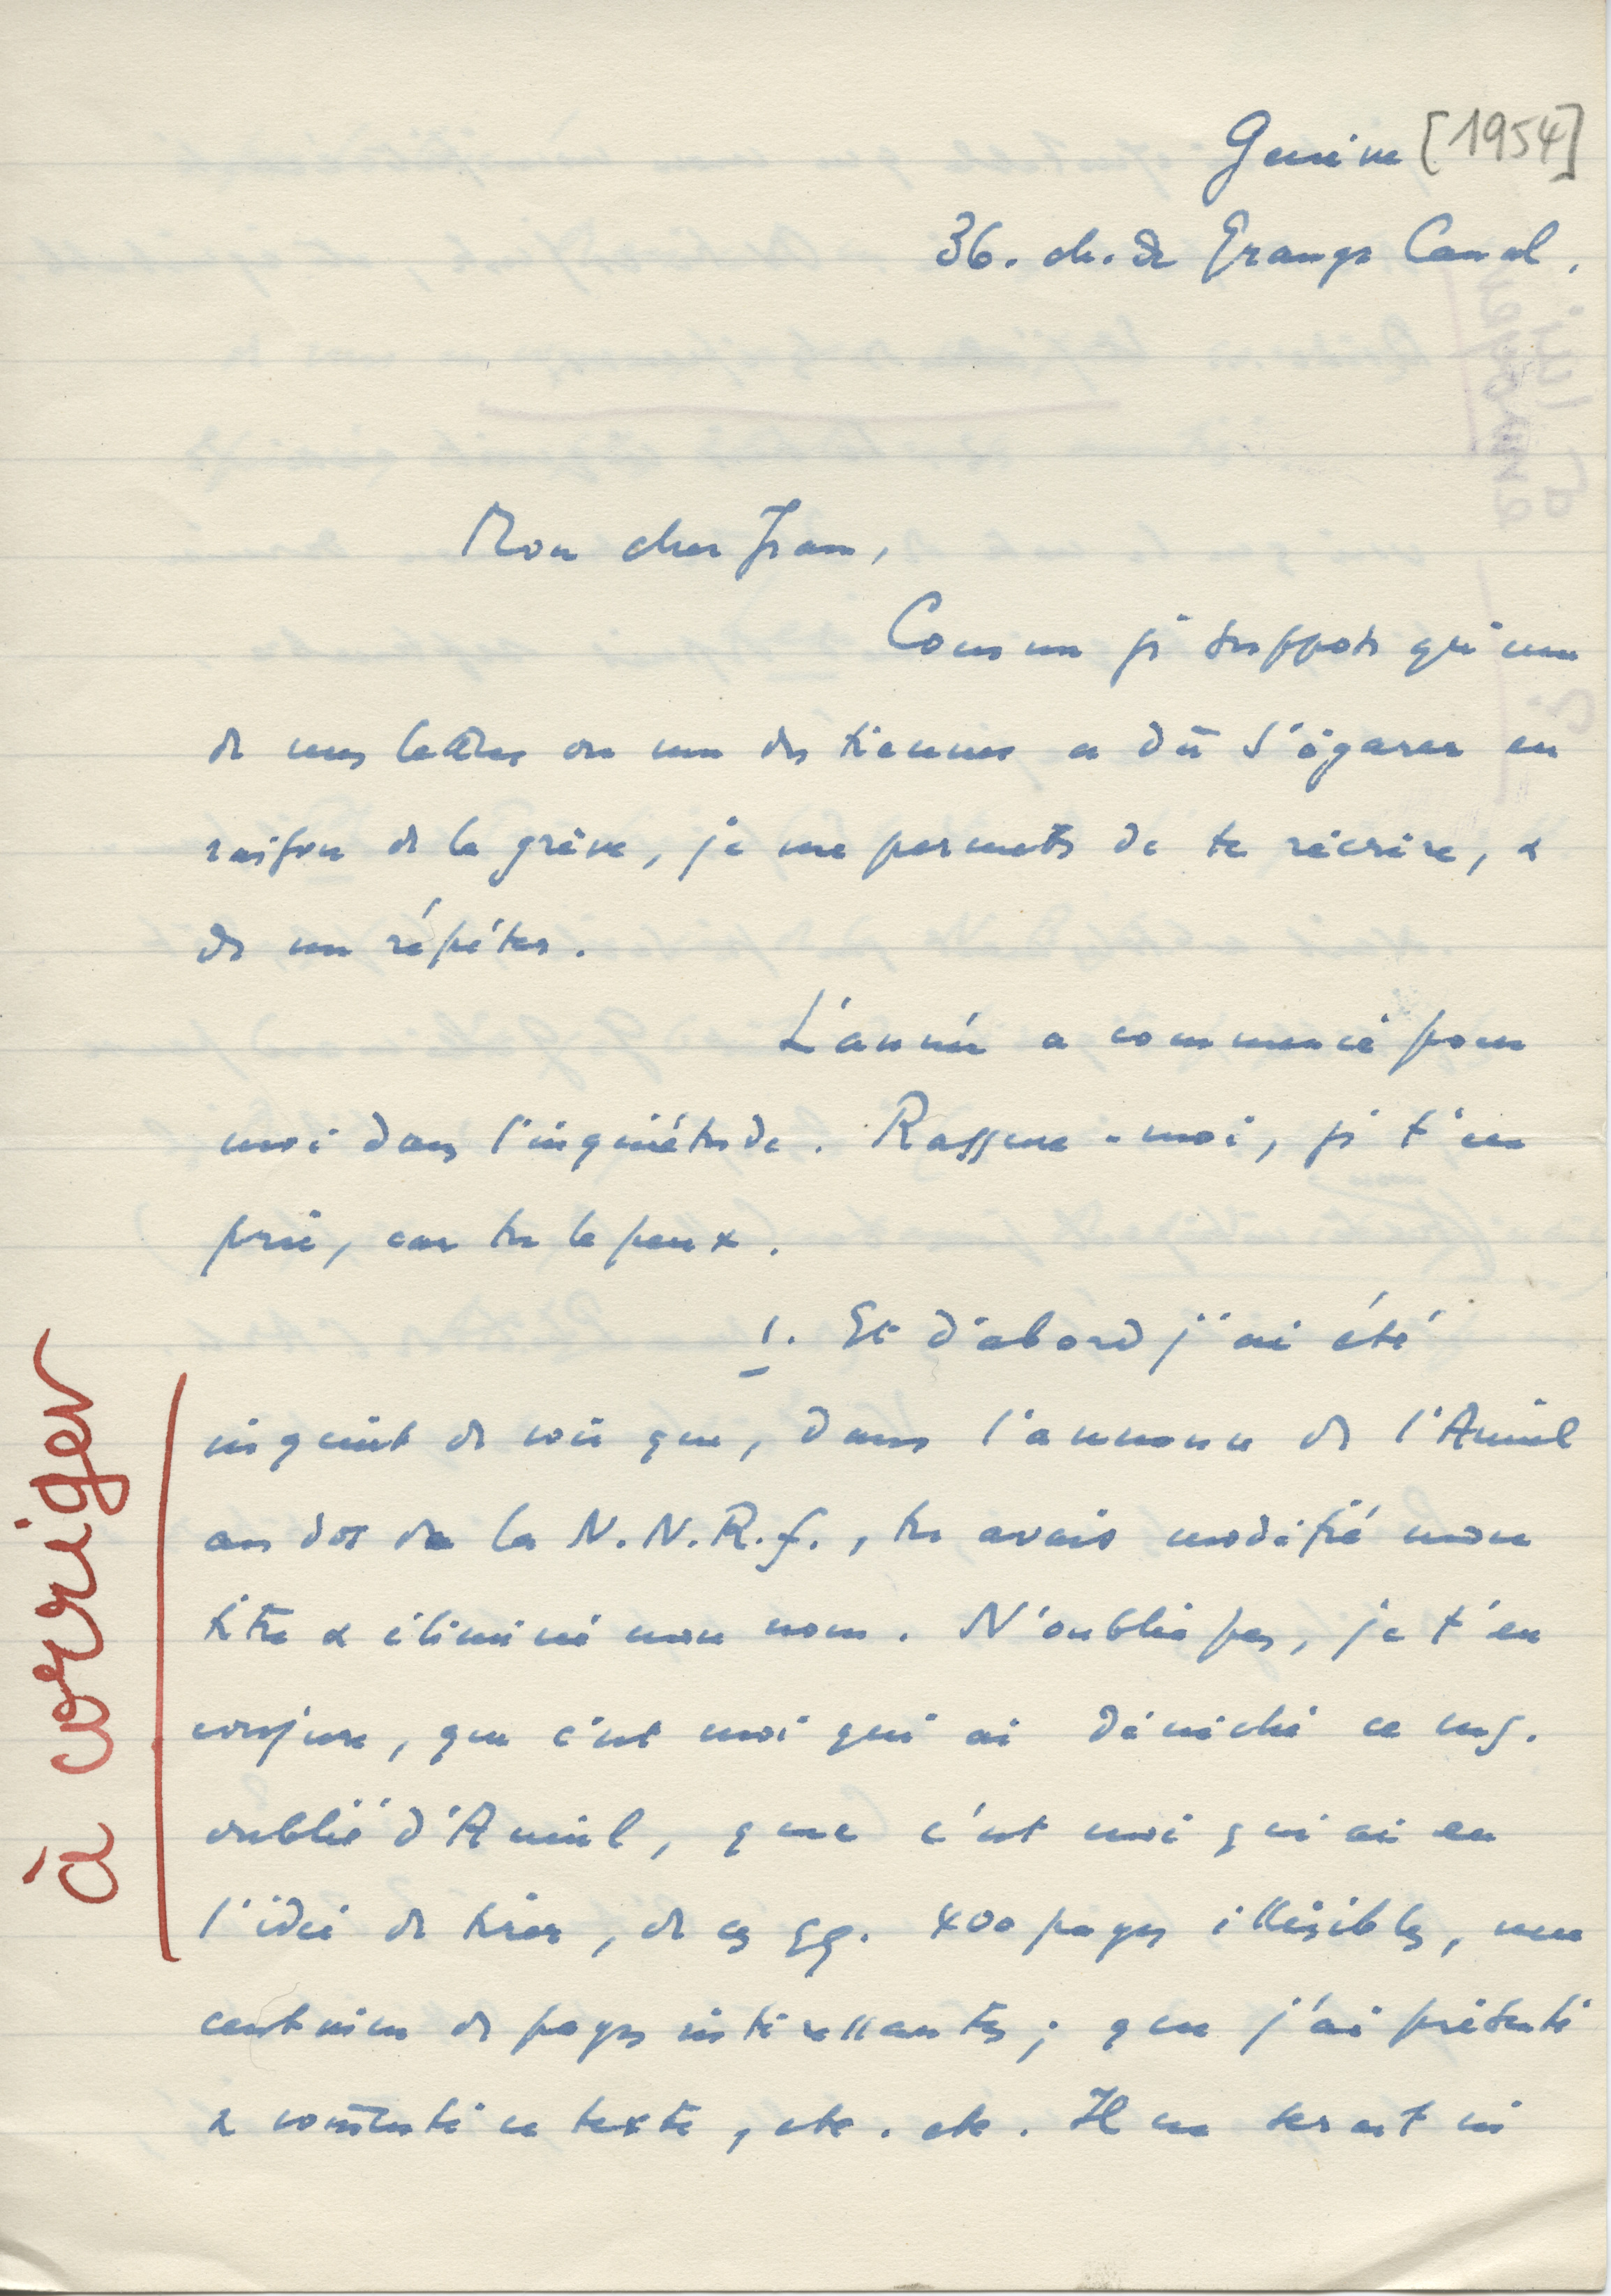 Genève [1954]
36. ch. de Grange Canal.
Mon cher Jean,
Comme je suppose qu'une
de mes lettres ou une des tiennes a dû s'égarer en
raison de la grève, je me permets de te récrire, &
de me répéter.
L'année a commencé pour
moi dans l'inquiétude. Rassure-moi, je t'en
prie, car tu le peux.
1. Et d'abord j'ai été
inquiet de voir que, dans l'annonce de l'Amiel
au dos de la N.N.R.f., tu avais modifié mon
titre & éliminé mon nom. N'oublie pas, je t'en
conjure, que c'est moi qui ai déniché ce ms.
oublié d'Amiel, que c'est moi qui ai eu
l'idée de tirer, de ces qq. 400 pages illisibles, une
centaine de pages intéressantes ; que j'ai présenté
& commenté ce texte, etc. etc. Il ne serait ni
à corriger